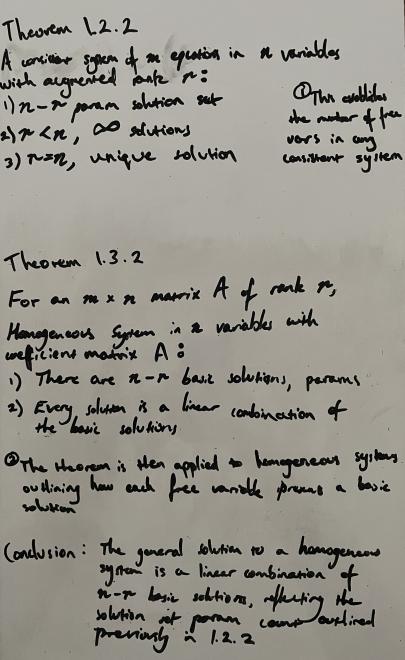 Theorem 1.2.2
A consistent system of m equation in n variables
with augmented rank r:
1) n-r param solution set
2) r<n, ∞ solutions
3) r=n, unique solution
① This establishes
the number of free
vars in any
consistent system
Theorem 1.3.2
For an m x n matrix A of rank r,
Homogeneous System in n variables with
coefficient matrix A:
1) There are n-r basic solutions, params
2) Every solution is a linear combination of
the basic solutions
② The theorem is then applied to homogeneous systems
outlining how each free variable a basic
solution
Conclusion: The general solution to a homogeneous
system is a linear combination of
n-r basic solutions, reflecting the
solution set param count outlined
previously in 1.2.2